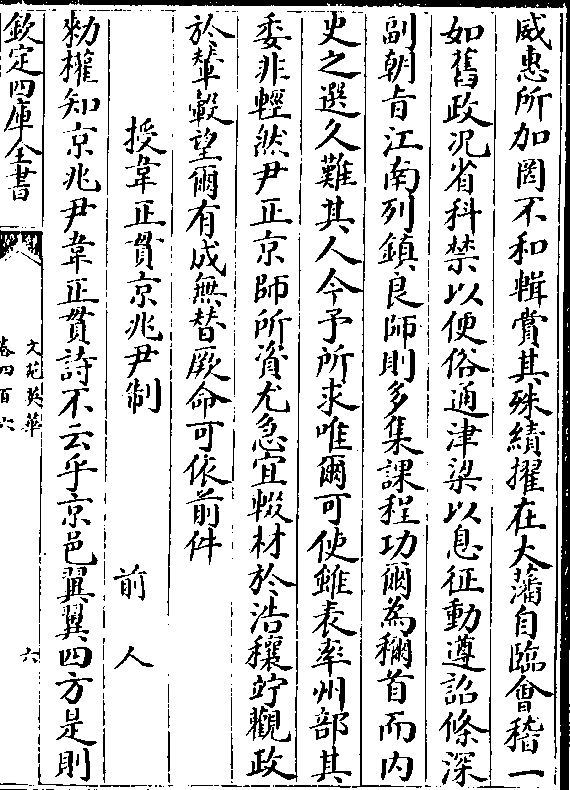 威惠所加罔不和輯賞其殊績擢在大藩自臨會稽一
如舊政况省科禁以便俗通津梁以息征動遵詔條深
副朝㫖江南列鎮良師則多集課程功爾為稱首而内
史之選久難其人今予所求唯爾可使雖表率州部其
委非輕然尹正京師所資尤急宜輟材於浩穰竚觀政
於輦轂望爾有成無替厥命可依前件
授韋正貫京兆尹制
前人
勑權知京兆尹韋正貫詩不云乎京邑翼翼四方是則
欽定四庫全書
文苑英華
卷四百六
六